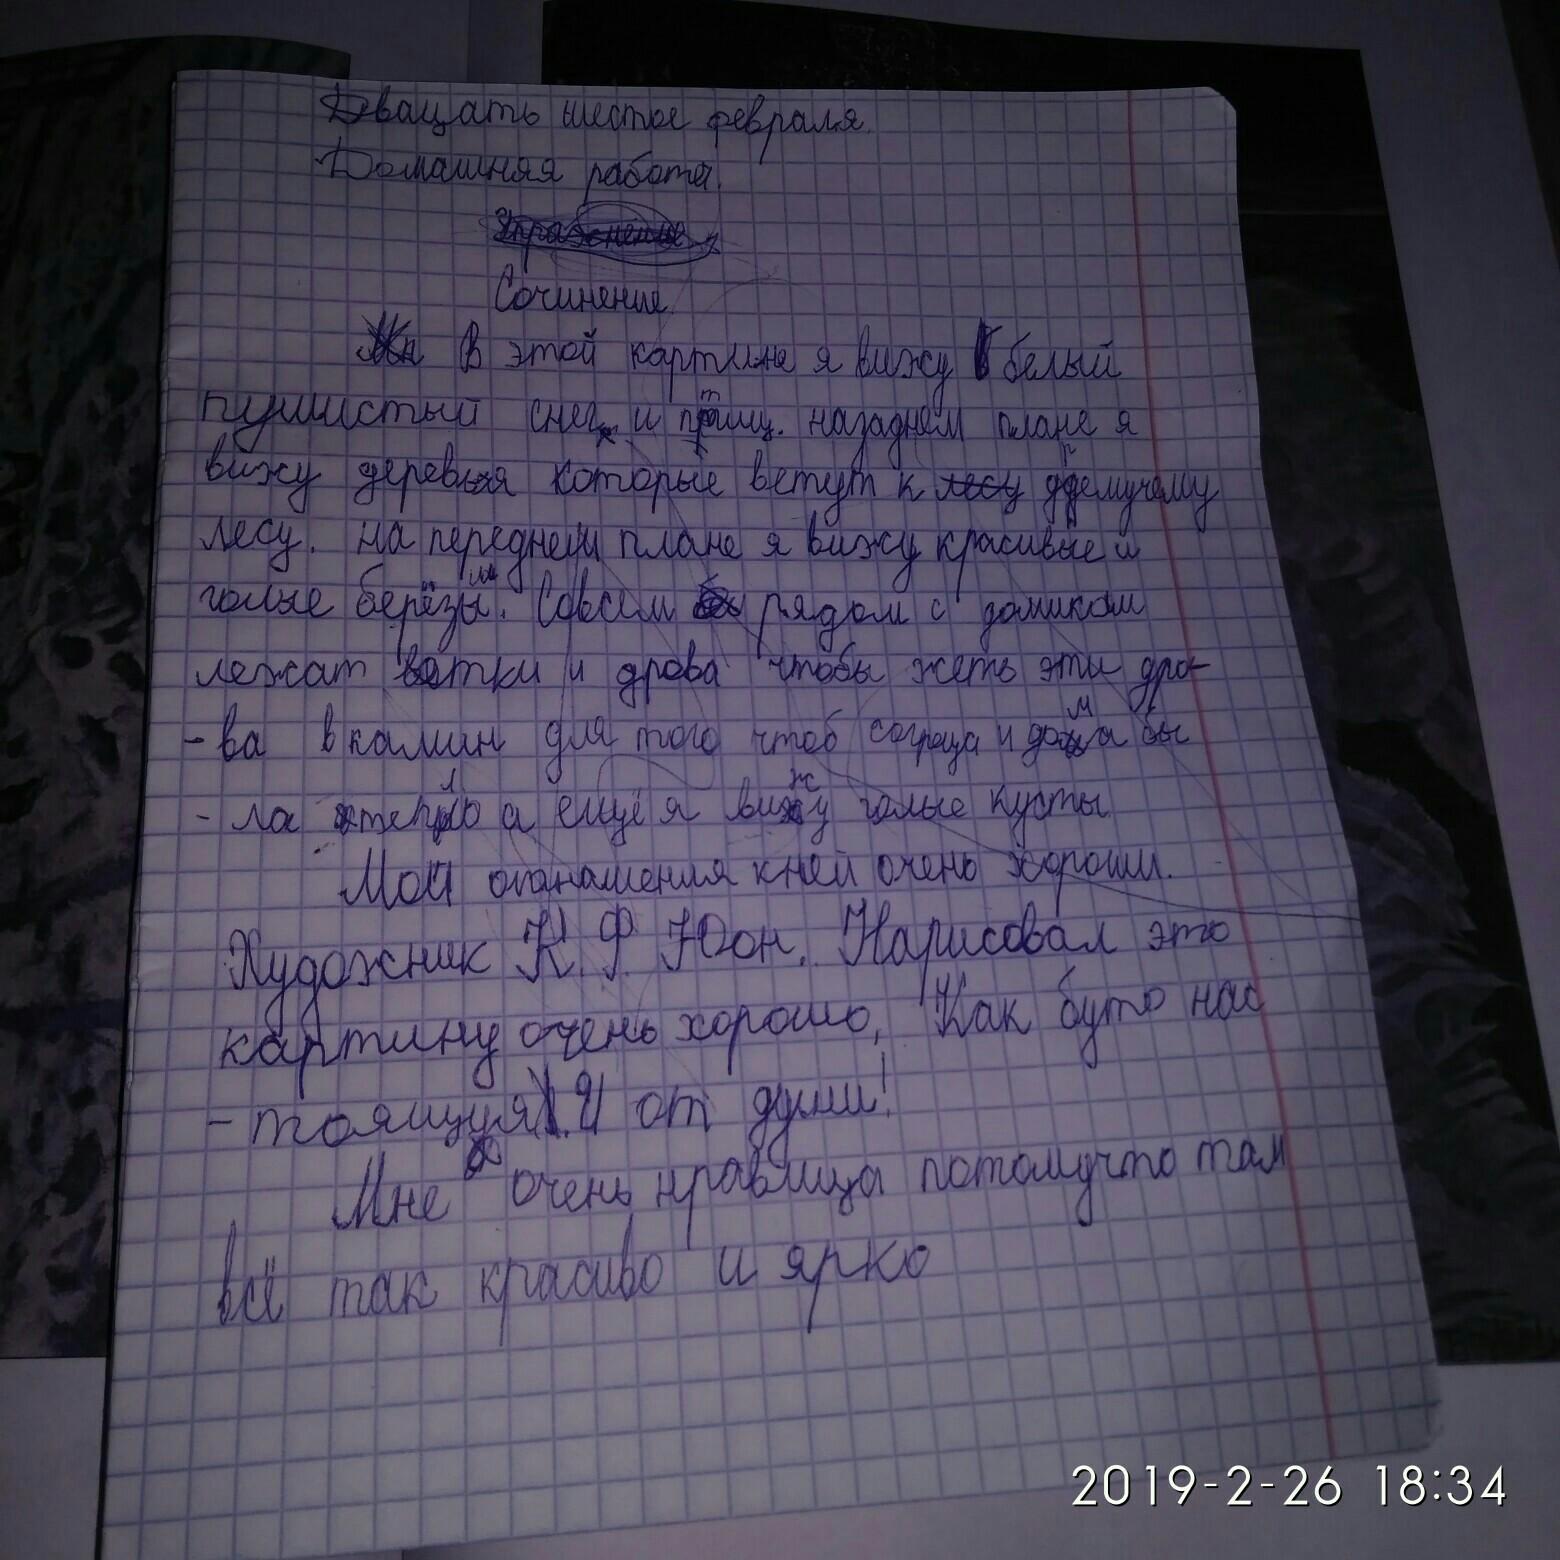 Дващать шестое февраля.
Домашняя работа.
Упражнение
Сочинение
В этой картине я вижу белый
пушистый снег и птиц. на заднем плане я
вижу деревья которые ветут к лесу дремучему
лесу. на переднем плане я вижу красивые и
голые берёзы. Совсем рядом с домиком
лежат ветки и дрова чтобы жеть эти дра-
-ва в камин для того чтоб сограца и дома бы
-ла тепло а ещё я вижу голые кусты
Мой отнашения кней очень хороши.
Художник К. Ф. Юон. Нарисовал это
картину очень хорошо, Как буто нас
-тоящуя. И от души!
Мне очень нравица потомучто там
всё так красиво и ярко
2019-2-26 18:34